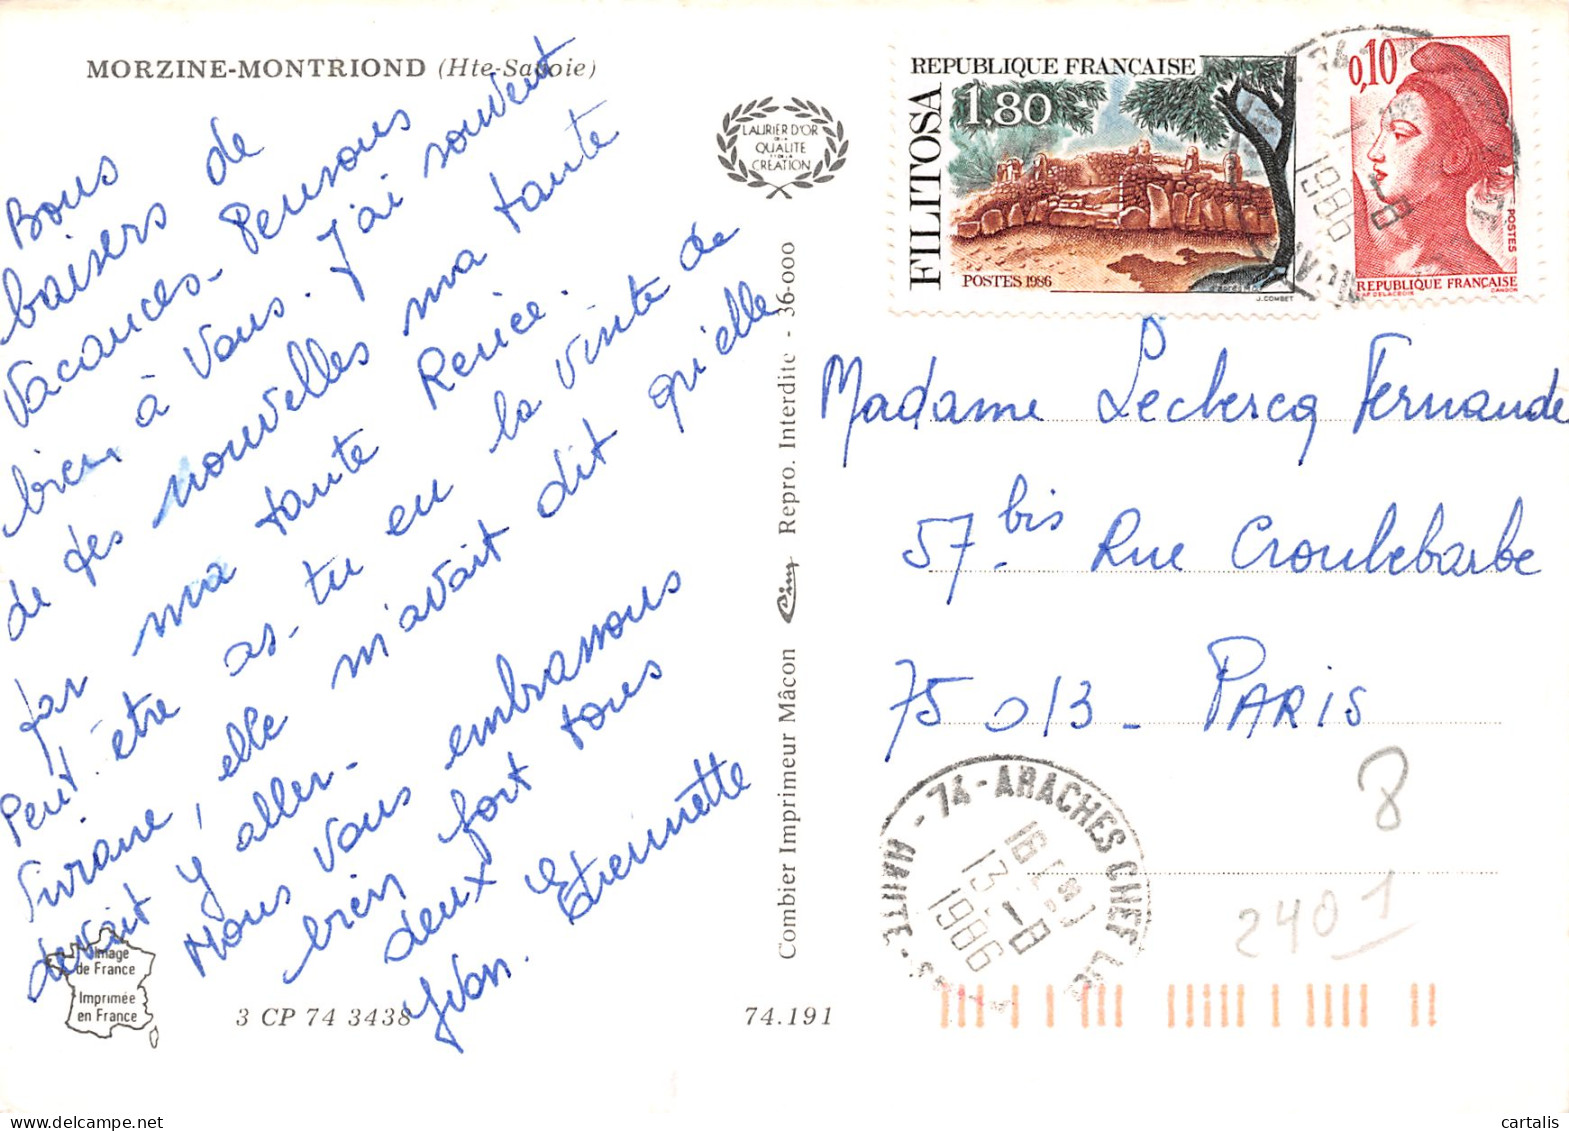 MORZINE-MONTRIOND (Hte-Savoie)
Bons
baisers de
Vacances - Pensons
bien à Vous. J'ai souvent
de tes nouvelles ma tante
par ma tante Renée.
Peut-être as-tu eu la visite de
, elle m'avait dit qu'elle
devait y aller -
Nous Vous embrassons
bien fort tous
deux
Etiennette
Yvan.
Image
de France
Imprimée
en France
3 CP 74 3438
74.191
LAURIER D'OR
DE LA
QUALITÉ
ET DE LA
CRÉATION
Combier Imprimeur Mâcon Cim Repro. Interdite - 36-000
REPUBLIQUE FRANÇAISE
1,80
FILITOSA
POSTES 1986
J. COMBET
0,10
POSTES
REPUBLIQUE FRANÇAISE
AP. DELACROIX GANDON
74
-8
1986
Madame Leclercq Fernande
57 bis Rue Croulebarbe
75013 - PARIS
74 - ARACHES CHEF LIEU
HAUTE-
16 H
13 -8
1986
8
2401
cartalis